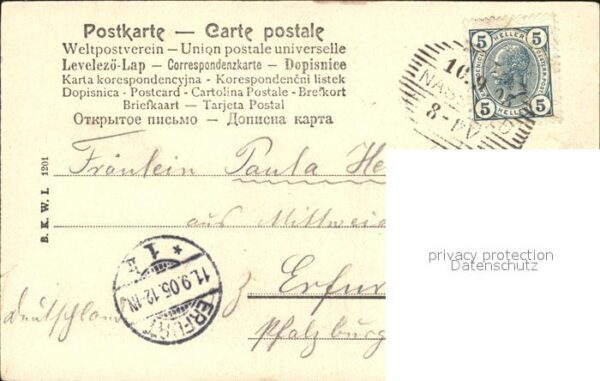 Postkarte — Carte postale
Weltpostverein — Union postale universelle
Levelező-Lap — Correspondenzkarte — Dopisnice
Karta korespondencyjna - Korespondenční listek
Dopisnica - Postcard - Cartolina Postale - Brefkort
Briefkaart — Tarjeta Postal
Открытое письмо — Дописна карта
5 HELLER 5
5 HELLER 5
B. K. W. I. 1201
Fräulein Paula He
aus Mittweid
z Erfur
Deutschland
Pfalzburg
* 1 *
11.9.05.12-1N.
ERFURT
privacy protection
Datenschutz